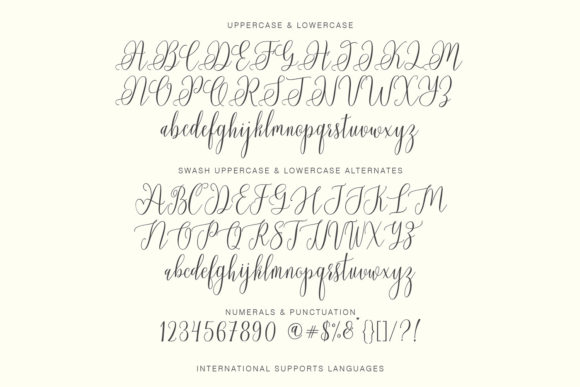 UPPERCASE & LOWERCASE
ABCDEFGHIJKLM
NOPQRSTUVWXYZ
abcdefghijklmnopqrstuvwxyz
SWASH UPPERCASE & LOWERCASE ALTERNATES
ABCDEFGHIJKLM
NOPQRSTUVWXYZ
abcdefghijklmnopqrstuvwxyz
NUMERALS & PUNCTUATION
1234567890 @#$%&* {}[]/?!
INTERNATIONAL SUPPORTS LANGUAGES